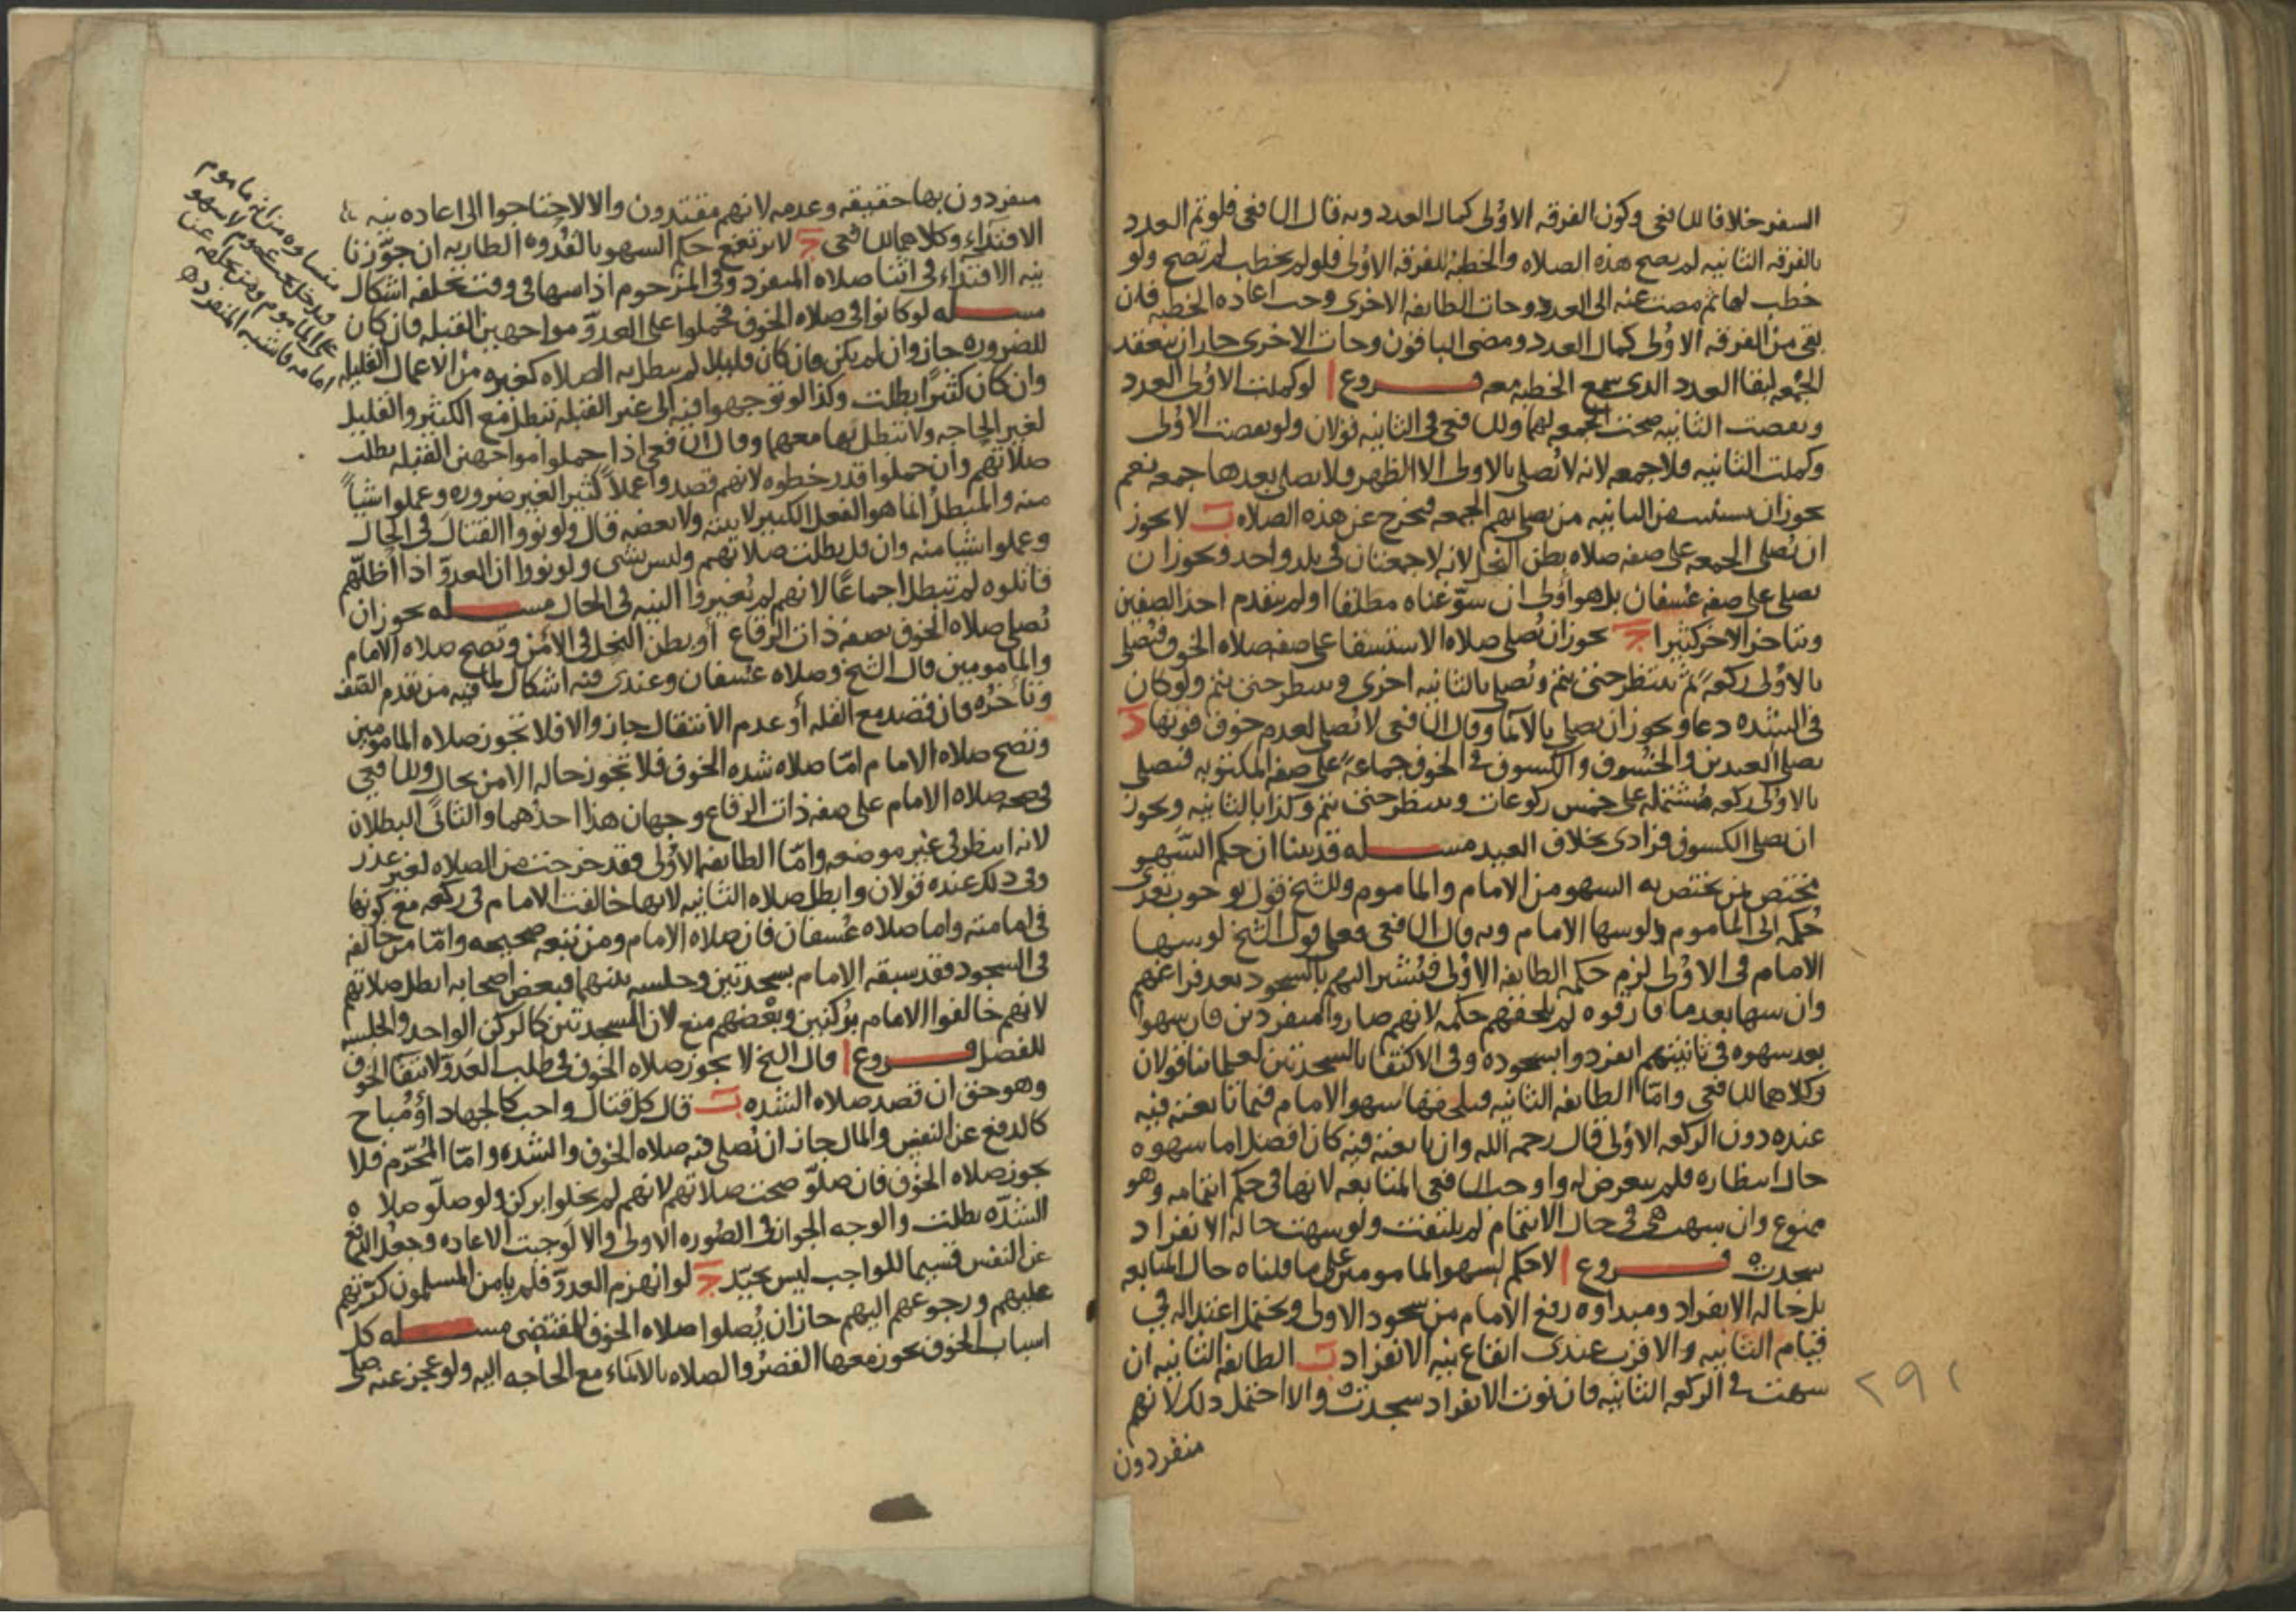 السفر خلافا للشافعى وكون الفرقه الاولى كمال العدد وبه قال الشافعى فلو تم العدد
بالفرقه الثانيه لم يصح هذه الصلاه والخطبه للفرقه الاولى فلو لم يخطب لم تصح ولو
خطب لها ثم مضت عنه الى العدو وجات الطايفه الاخرى وجب اعاده الخطبه فان
بقى من الفرقه الاولى كمال العدد ومضى الباقون وجات الاخرى جاز ان يعقد
الجمعه لبقا العدد الدى سمع الخطبه معه فروع ا لو كملت الاولى العدد
ونقصت الثانيه صحت الجمعه لهما وللشافعى فى الثانيه قولان ولو نقصت الاولى
وكملت الثانيه فلا جمعه لانه لا يُصلى بالاولى الا الظهر ولا يصلى بعدها جمعه نعم
يجوز ان يستنيب من الثانيه من يصلى بهم الجمعه فيخرج عن هذه الصلاه ب لا يجوز
ان تُصلى الجمعه على صفه صلاه بطن النخل لانه لا جمعتان فى بلد واحد ويجوز ان
يصلى على صفه عسفان بل هو اولى ان سوّغناه مطلقا او لم يتقدم احد الصفين
ويتاخر الاخر كثيرا ج يجوز ان تُصلى صلاه الاستسقا على صفه صلاه الخوف فيُصلى
بالاولى ركعةً ثم ينتظر حتى يتم ويُصلى بالثانيه اخرى وينتظر حتى يتم ولو كان
فى الشده دعا ويجوز ان يصلى بالايما وقال الشافعى لا تُصلى لعدم خوف فوتها د
يصلى العيدين والخسوف والكسوف فى الخوف جماعةً على صفه المكتوبه فيصلى
بالاولى ركعه مشتمله على خمس ركوعات وينتظر حتى يتم وكذا بالثانيه ويجوز
ان يصلى الكسوف فرادى بخلاف العيد مسله قد بينا ان حكم السَّهو
مختص بمن يختص به السهو من الامام والماموم وللشيخ قول بوجوب تعدى
حُكمه الى الماموم ولو سها الامام وبه قال الشافعى فعلى قول الشيخ لو سها
الامام فى الاولى لزم حكمه الطايفه الاولى فيُشير اليهم بالسجود بعد فراغهم
وان سها بعد ما فارقوه لم يلحقهم حكمه لانهم صاروا منفردين فان سهوا
بعد سهوه فى ثانيتهم انفردوا بسجوده وفى الاكتفا بالسجدتين لعلمائنا قولان
وكلاهما للشافعى وامّا الطايفه الثانيه فيلحقها سهو الامام فيما تابعته فيه
عنده دون الركعه الاولى قال رحمه الله وان تابعته فيه كان افضل اما سهوه
حال انتظاره فلم يتعرض له واوجب الشافعى المتابعه لانها فى حكم ايتمامه وهو
ممنوع وان سهت هى فى حال الايتمام لم يلتفت ولو سهت حاله الانفراد
سجدت فروع ا لا حكم لسهو المامومين على ما قلناه حال المتابعه
بل حاله الانفراد ومبداوه رفع الامام من سجود الاولى ويحتمل اعتداله فى
قيام الثانيه والاقرب عندى ايقاع نيه الانفراد ب الطايفه الثانيه ان
سهت فى الركعه الثانيه فان نوت الانفراد سجدت والا احتمل ذلك لانهم
منفردون
٢٩١
منفردون بها حقيقه وعدمه لانهم مقتدون والا لاحتاجوا الى اعاده نيه
الاقتداء وكلاهما للشافعى ج لا يرتفع حكم السهو بالقُدوه الطاريه ان جوّزنا
نيه الاقتداء فى اثنا صلاه المنفرد وفى المزحوم اذا سها فى وقت تخلفه اشكال
مسله لو كانوا فى صلاه الخوف فحملوا على العدوّ مواجهين القبله فان كان
للضروره جاز وان لم يكن فان كان قليلا لم يبطل به الصلاه كغيره من الاعمال القليله
وان كان كثيرًا بطلت وكذا لو توجهوا فيه الى غير القبله تبطل مع الكثير والقليل
لغير الحاجه ولا تبطل بها معهما وقال الشافعى اذا حملوا مواجهين القبله بطلت
صلاتهم وان حملوا قدر خطوه لانهم قصدوا عملاً كثيرا لغير ضروره وعملوا شياً
منه والمبطل انما هو الفعل الكثير لا نيته ولا بعضه قال ولو نووا القتال فى الحال
وعملوا شيا منه وان قل بطلت صلاتهم وليس بشى ولو نووا ان العدوّ اذا اظلّهم
قاتلوه لم تبطل اجماعًا لانهم لم يُغيروا النيه فى الحال مسله يجوز ان
تُصلى صلاه الخوف بصفه ذات الرقاع أو بطن النخل فى الامن وتصح صلاه الامام
والمامومين قال الشيخ وصلاه عسفان وعندى فيه اشكال لما فيه من تقدم الصّف
وتأخّره فان قصد مع القله أو عدم الانتقال جاز والا فلا تجوز صلاه المامومين
وتصح صلاه الامام امّا صلاه شده الخوف فلا تجوز حاله الامن بحال وللشافعى
فى صحه صلاه الامام على صفه ذات الرقاع وجهان هذا احدهما والثانى البطلان
لانه انتظر فى غير موضعه وامّا الطايفه الاولى فقد خرجت من الصلاه لغير عذر
وفى ذلك عنده قولان وابطل صلاه الثانيه لانها خالفت الامام فى ركعه مع كونها
فى امامته واما صلاه عُسفان فان صلاه الامام ومن تبعه صحيحه وامّا من خالفه
فى السجود فقد سبقه الامام بسجدتين وجلسه بينهما فبعض اصحابه ابطل صلاتهم
لانهم خالفوا الامام بركنين وبعضهم منع لان السجدتين كالركن الواحد والجلسه
للفصل فروع ا قال الشيخ لا يجوز صلاه الخوف فى طلب العدوّ لانتفا الخوف
وهو حق ان قصد صلاه الشده ب قال كل قتال واجب كالجهاد أو مُباح
كالدفع عن النفس والمال جاز ان تُصلى فيه صلاه الخوف والشده وامّا المُحرّم فلا
يجوز صلاه الخوف فان صلّو صحت صلاتهم لانهم لم يخلوا بركن ولو صلّو صلاه
الشدّه بطلت والوجه الجواز فى الصُوره الاولى والا لوجبت الاعاده وجعل الدفع
عن النفس قسيما للواجب ليس بجيّد ج لو انهزم العدوّ فلم يامن المسلمون كرّتهم
عليهم ورجوعهم اليهم جاز ان يُصلوا صلاه الخوف للمقتضى مسله كل
اسباب الخوف يجوز معها القصرُ والصلاه بالايماء مع الحاجه اليه ولو عجز عنه صلى
من انه ماموم
فيدخل تحت عموم لا سهو
على الماموم ومن تخلفه عن
امامه فاشبه المنفرد